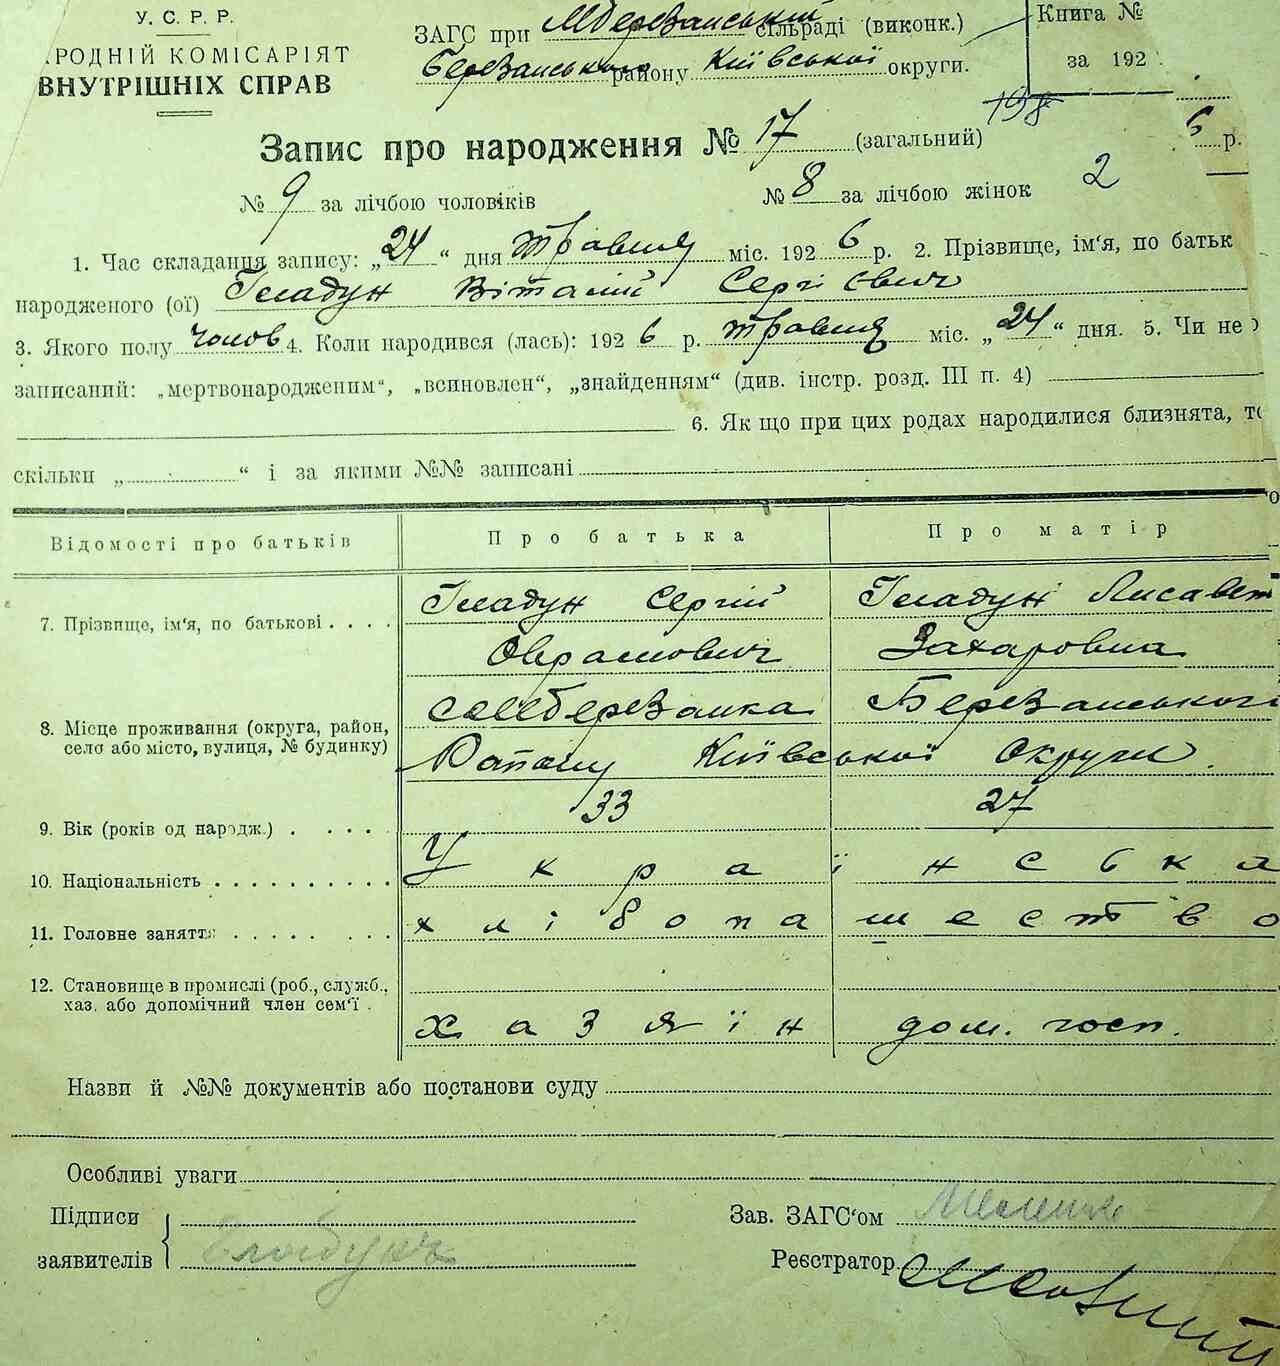 У. С. Р. Р.
РОДНІЙ КОМІСАРІЯТ
ВНУТРІШНІХ СПРАВ
ЗАГС при Мберезанській сільраді (виконк.)
Березанського району Київської округи.
Книга №
за 192
198
6 р.
Запис про народження № 17 (загальний)
№ 9 за лічбою чоловіків № 8 за лічбою жінок 2
1. Час складання запису: „24“ дня травня міс. 1926 р. 2. Прізвище, ім‘я, по батьк
народженого (ої) Гладун Віталій Сергієвич
3. Якого полу чолов 4. Коли народився (лась): 1926 р. травня міс. „24“ дня. 5. Чи не
записаний: „мертвонародженим“, „всиновлен“, „знайденням“ (див. інстр. розд. III п. 4)
6. Як що при цих родах народилися близнята, то
скільки „ “ і за якими №№ записані
Відомості про батьків Про батька Про матір
7. Прізвище, ім‘я, по батькові Гладун Сергій Гладун Лисавет
Оврамович Захаровна
8. Місце проживання (округа, район, село або місто, вулиця, № будинку) с Мберезанка Березанського
Району Київської Округи.
9. Вік (років од народж.) 33 27
10. Національність Українська
11. Головне заняття хлібопашество
12. Становище в промислі (роб., служб., хаз. або допомічний член сем‘ї .
хазяїн дом. госп.
Назви й №№ документів або постанови суду
Особливі уваги
Підписи
заявителів Гладунъ
Зав. ЗАГС‘ом
Реєстратор